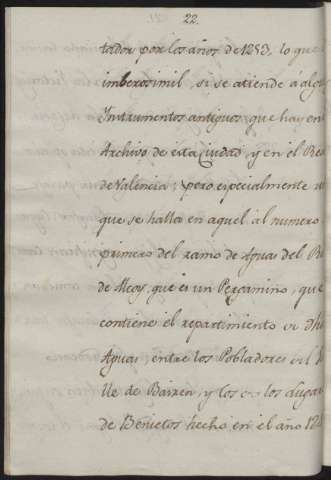 22
tador por los años de 1253, lo que
imberosimil, si se atiende á
Instrumentos antiguos, que hay en
Archivo de esta Ciudad, y en el
de Valencia; pero especialmente
que se halla en aquel al numero
primero del ramo de Aguas del
de Alcoy, que es un Pergamino, que
contiene el repartimiento de
Aguas, entre los Pobladores del
lle de Barxen, y los de los Lugar
de Benietos hecho en el año